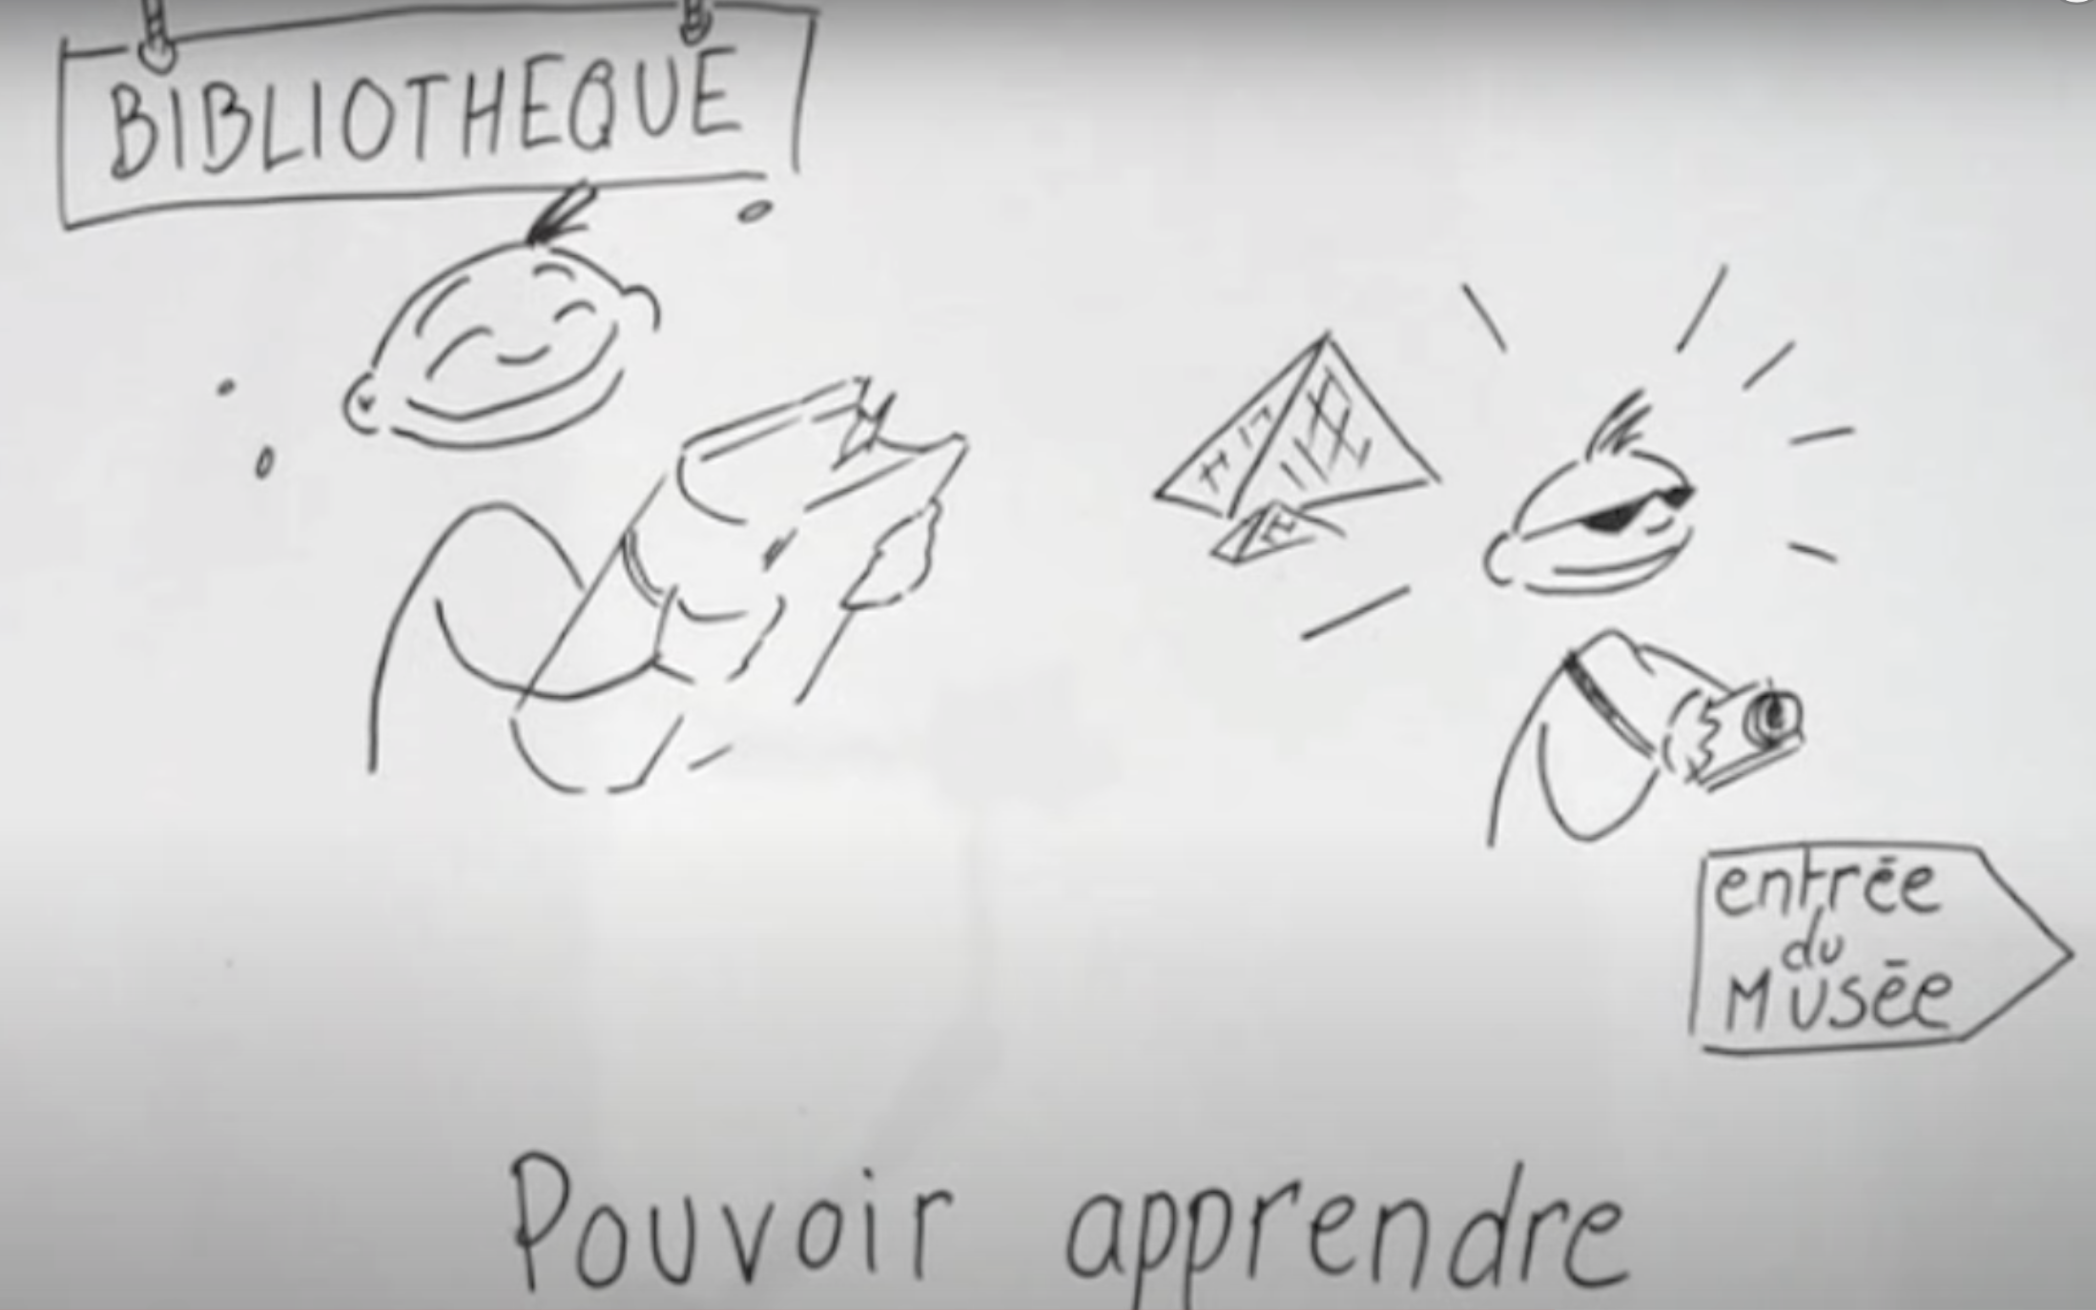 BIBLIOTHEQUE
entrée
du
Musée
Pouvoir apprendre